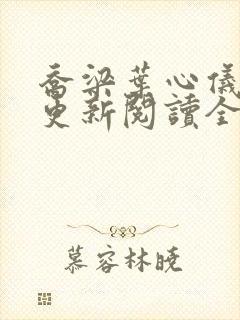 喬梁葉心儀
更新閱讀全
慕容林曉